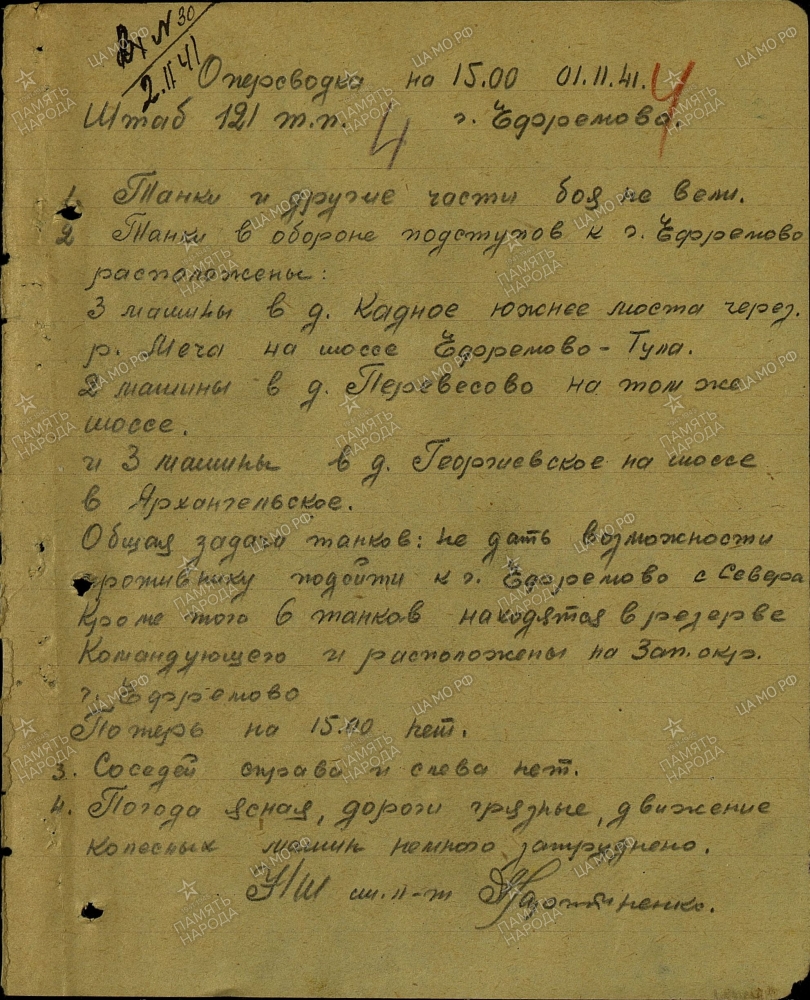 Вх N 30
2.11 41
Оперсводка на 15.00 01.11.41.
4
Штаб 121 т.п. г. Ефремово.
4
1. Танки и другие части боя не вели.
2 Танки в обороне подступов к г. Ефремово
расположены:
3 машины в д. Кадное южнее моста через.
р. Меча на шоссе Ефремово - Тула.
2 машины в д. Перевесово на том же
шоссе.
и 3 машины в д. Георгиевское на шоссе
в Архангельское.
Общая задача танков: не дать возможности
противнику подойти к г. Ефремово с Севера
Кроме того 6 танков находятся в резерве
Командующего и расположены на Зап. окр.
г. Ефремово
Потерь на 15.00 нет.
3. Соседей справа и слева нет.
4. Погода ясная, дороги грязные, движение
колесных машин немного затруднено.
НШ
ПАМЯТЬ НАРОДА
ЦАМО.РФ